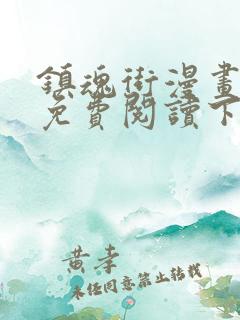 鎮魂街漫畫
免費閱讀下
黃李
未經同意禁止轉載